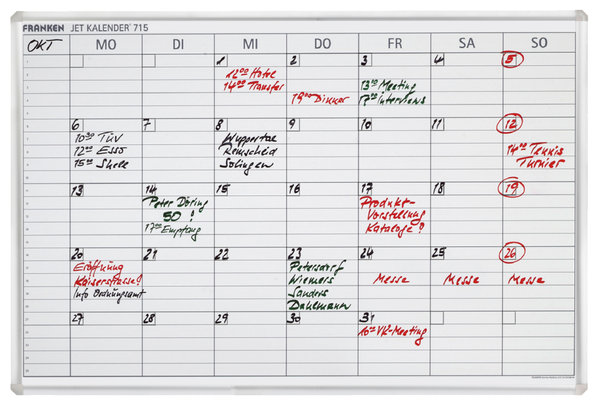 FRANKEN JET KALENDER® 715
OKT MO DI MI DO FR SA SO
1 2 3 4 5
12⁰⁰ Hotel
14⁰⁰ Transfer
19⁰⁰ Dinner
13⁰⁰ Meeting
17⁰⁰ Interviews
6 7 8 9 10 11 12
10³⁰ TÜV
12⁰⁰ ESSO
15⁰⁰ Shell
Wuppertal
Remscheid
Solingen
14⁰⁰ Tennis
Turnier
13 14 15 16 17 18 19
Peter Döring
50!
17⁰⁰ Empfang
Produkt-
Vorstellung
Kataloge?
20 21 22 23 24 25 26
Eröffnung
Kaiserstrasse!
Info Ordnungsamt
Petersdorf
Wiemers
Sanders
Dahlmann
Messe Messe Messe
27 28 29 30 31
10⁰⁰ VK-Meeting